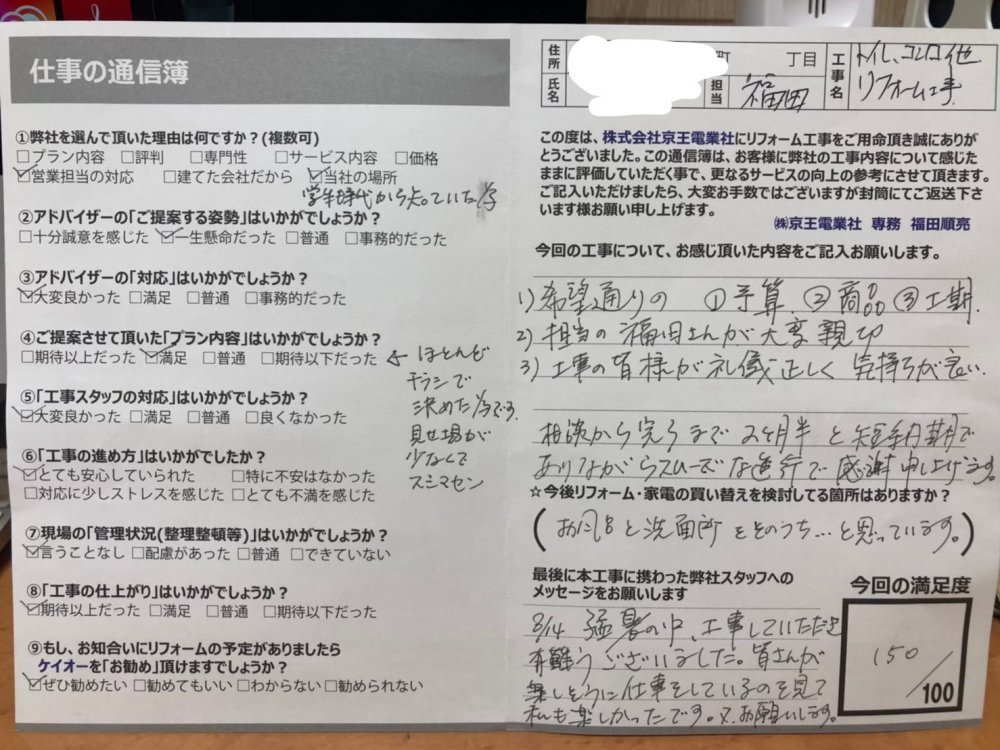 仕事の通信簿
①弊社を選んで頂いた理由は何ですか?(複数可)
□プラン内容 □評判 □専門性 □サービス内容 □価格
☑営業担当の対応 □建てた会社だから ☑当社の場所
学生時代から知っていた
②アドバイザーの「ご提案する姿勢」はいかがでしょうか?
□十分誠意を感じた ☑一生懸命だった □普通 □事務的だった
③アドバイザーの「対応」はいかがでしょうか?
☑大変良かった □満足 □普通 □事務的だった
④ご提案させて頂いた「プラン内容」はいかがでしょうか?
□期待以上だった ☑満足 □普通 □期待以下だった
← ほとんど
チラシで
決めた です。
見せ場が
少なくて
スミマセン
⑤「工事スタッフの対応」はいかがでしょうか?
☑大変良かった □満足 □普通 □良くなかった
⑥「工事の進め方」はいかがでしたか?
☑とても安心していられた □特に不安はなかった
□対応に少しストレスを感じた □とても不満を感じた
⑦現場の「管理状況(整理整頓等)」はいかがでしたか?
☑言うことなし □配慮があった □普通 □できていない
⑧「工事の仕上がり」はいかがでしょうか?
☑期待以上だった □満足 □普通 □期待以下だった
⑨もし、お知合いにリフォームの予定がありましたら
ケイオーを「お勧め」頂けますでしょうか?
☑ぜひ勧めたい □勧めてもいい □わからない □勧められない
住所 町 丁目
氏名
担当 福田
工事名 トイレ、コンロ他
リフォーム工事
この度は、株式会社京王電業社にリフォーム工事をご用命頂き誠にありが
とうございました。この通信簿は、お客様に弊社の工事内容について感じた
ままに評価していただく事で、更なるサービスの向上の参考にさせて頂きます。
ご記入いただけましたら、大変お手数ではございますが封筒にてご返送下さ
います様お願い申し上げます。
㈱京王電業社 専務 福田順亮
今回の工事について、お感じ頂いた内容をご記入お願いします。
1) 希望通りの ①予算 ②商品 ③工期
2) 担当の福田さんが大変親切
3) 工事の皆様が礼儀正しく気持ちが良い。
相談から完了まで2ヶ月半と短納期で
ありながらスムーズな進行で感謝申し上げます。
☆今後リフォーム・家電の買い替えを検討してる箇所はありますか?
(お風呂と洗面所をそのうち…と思っています。)
最後に本工事に携わった弊社スタッフへの
メッセージをお願いします
8/14 猛暑の中、工事していただき
有難うございました。皆さんが
楽しそうに仕事をしているのを見て
私も楽しかったです。又、お願いします。
今回の満足度
150
/100